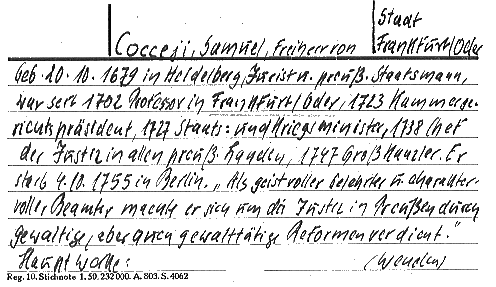 Stadt
Cocceji, Samuel, Freiherr von Frankfurt/Oder
Geb. 20.10.1679 in Heidelberg, Jurist u. preuß. Staatsmann,
war seit 1702 Professor in Frankfurt/Oder, 1723 Kammerge-
richtspräsident, 1727 Staats= und Kriegsminister, 1738 Chef
der Justiz in allen preuß. Landen, 1747 Großkanzler. Er
starb 4.10.1755 in Berlin. „Als geistvoller Gelehrter u. charakter-
voller Beamter machte er sich um die Justiz in Preußen durch
gewaltige, aber auch gewalttätige Reformen verdient."
Hauptwerke: (wenden)
Reg. 10. Stichnote 1. 50. 232000. A. 803. S. 4062